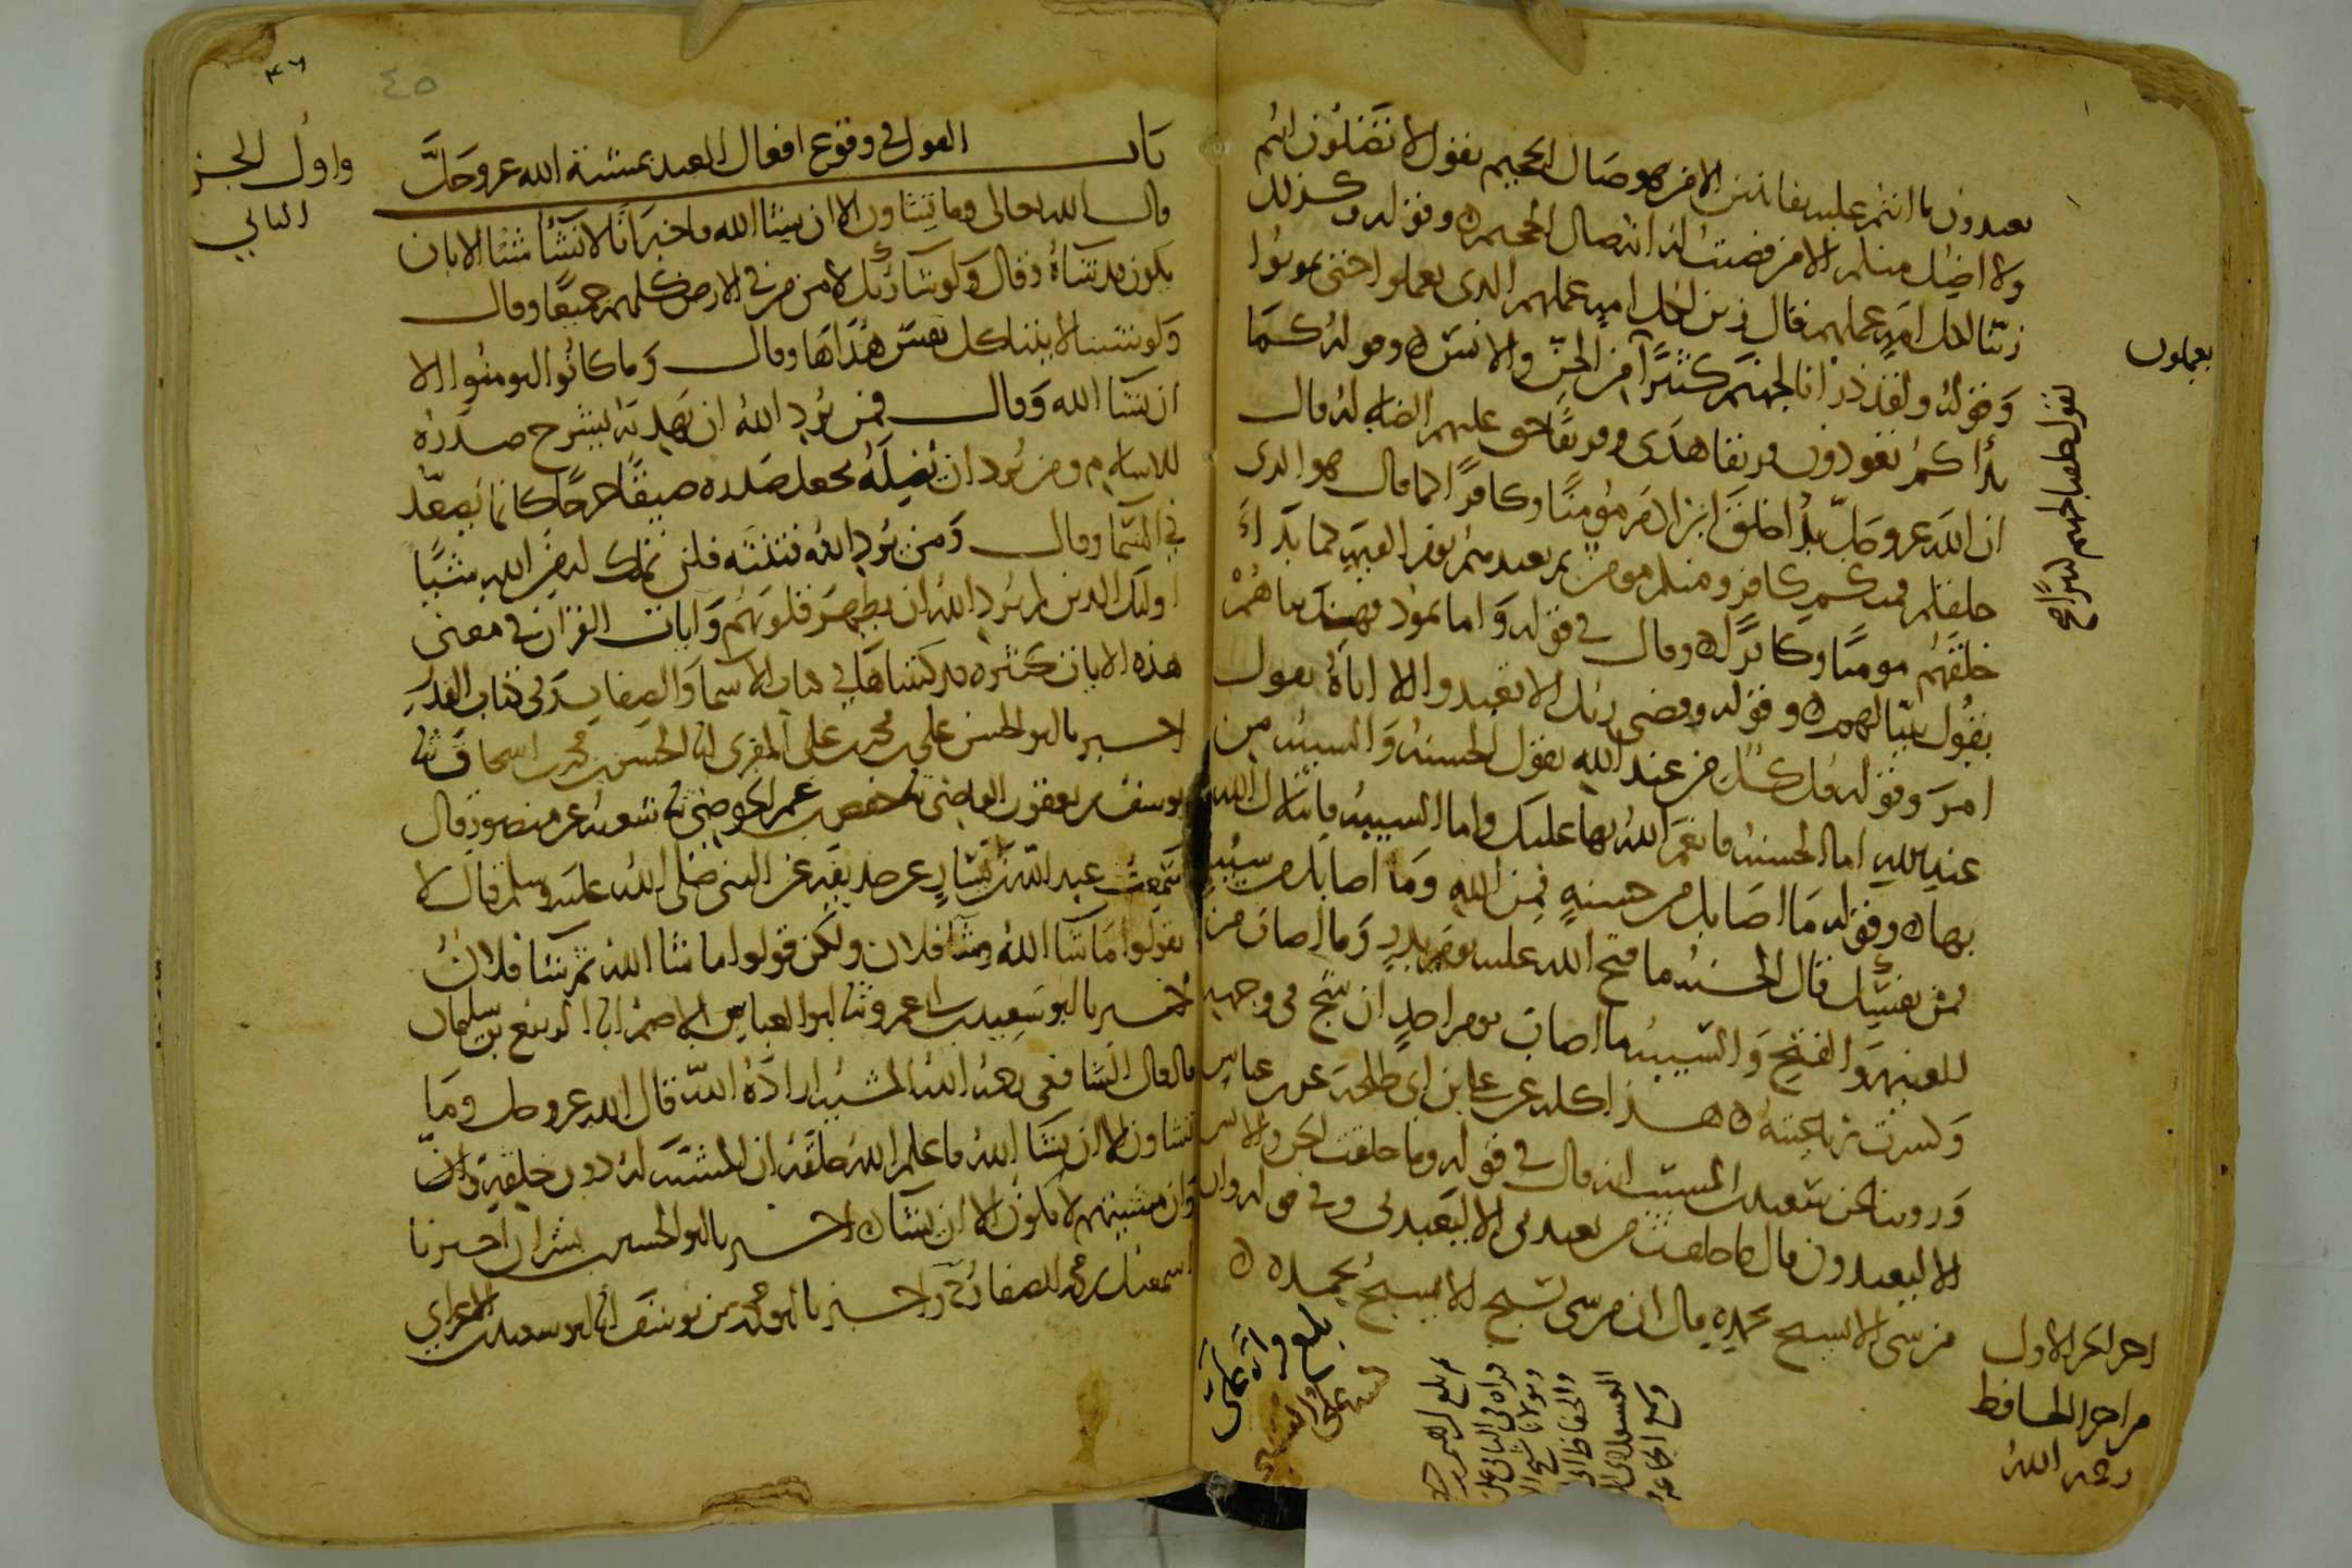 تعبدون ما انتم عليه بفاتنين الا من هو صال الجحيم يقول لا تضلون انتم
ولا اضل منكم الا من قضيت له انه صال الجحيم وقوله وكذلك
زينا لكل امة عملهم قال زين لكل امة عملهم الذي يعملوا حتى يموتوا
يعملون
وقوله ولقد ذرأنا لجهنم كثيرا من الجن والانس وقوله كما
يقول خلقنا لجهنم كثيرا
بدأكم تعودون فريقا هدى وفريقا حق عليهم الضلالة قال
ان الله عز وجل بدأ خلق ابن ادم مؤمنا وكافرا كما قال هو الذي
خلقكم فمنكم كافر ومنكم مؤمن ثم يعيدهم يوم القيمة كما بدأ
خلقهم مومنا وكافرا وقال في قوله واما ثمود فهديناهم
يقول بينا لهم وقوله وقضى ربك الا تعبدوا الا اياه يقول
امر وقوله قل كل من عند الله يقول الحسنة والسيئة من
عند الله اما الحسنة فانعم الله بها عليك واما السيئة فابتلاك الله
بها وقوله ما اصابك من حسنة فمن الله وما اصابك من سيئة
فمن نفسك قال الحسنة ما فتح الله عليه يوم بدر وما اصاب من
الغنيمة والفتح والسيئة ما اصاب يوم احد ان شج في وجهه
وكسرت رباعيته هذا كله عن علي بن ابي طلحة عن ابن عباس
وروينا عن سعيد بن المسيب انه قال في قوله وما خلقت الجن والانس
الا ليعبدون قال ما خلقت من يعبدني الا ليعبدني وفي قوله وان
من شي الا يسبح بحمده قال ان من شي تسبح الا يسبح بحمده
اخر الجز الاول
من اجزا الحافظ
رحمه الله
بلغ قراءة علي
٤٦
٤٥
باب القول في وقوع افعال العبد بمشيئة الله عز وجل
واول الجز
الثاني
قال الله تعالى وما تشاون الا ان يشا الله فاخبر انا لا نشأ شيئا الا بان
يكون قد شاءه وقال ولو شا ربك لامن من في الارض كلهم جميعا وقال
ولو شئنا لاتينا كل نفس هداها وقال وما كانوا ليومنوا الا
ان يشا الله وقال فمن يرد الله ان يهديه يشرح صدره
للاسلام ومن يرد ان يضله يجعل صدره ضيقا حرجا كانما يصعد
في السما وقال ومن يرد الله فتنته فلن تملك له من الله شيئا
اولئك الذين لم يرد الله ان يطهر قلوبهم وايات القران في معنى
هذه الايات كثيرة قد كتبناها في كتاب الاسما والصفات وفي كتاب القدر
اخبرنا ابو الحسن علي بن محمد بن علي المقري انا الحسن بن محمد بن اسحاق ثنا
يوسف بن يعقوب القاضي ثنا حفص بن عمر الحوضي ثنا شعبة عن منصور قال
سمعت عبد الله بن يسار عن حذيفة عن النبي صلى الله عليه وسلم قال لا
تقولوا ما شا الله وشا فلان ولكن قولوا ما شا الله ثم شا فلان
اخبرنا ابو سعيد بن ابي عمرو ثنا ابو العباس الاصم انا الربيع بن سليمان
قال قال الشافعي رحمه الله المشيئة ارادة الله قال الله عز وجل وما
تشاون الا ان يشا الله فاعلم الله خلقه ان المشيئة له دون خلقه وان
وان مشيئتهم لا تكون الا ان يشا اخبرنا ابو الحسين بن بشران اخبرنا
اسمعيل بن محمد الصفار ح واخبرنا ابو محمد بن يوسف انا ابو سعيد بن الاعرابي